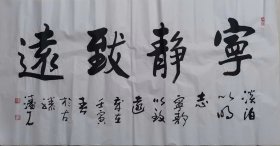 寧静致遠
淡泊
以明
志
寧静
以致
遠
歲在
壬寅
春
於古